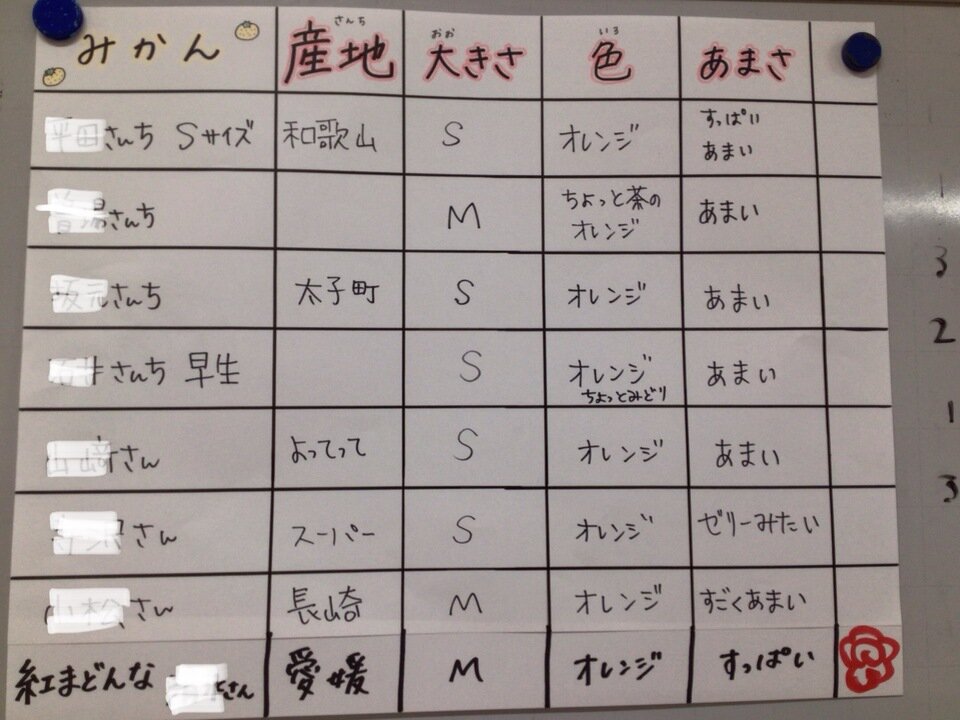 さんち おお いろ
みかん 産地 大きさ 色 あまさ
さんち Sサイズ 和歌山 S オレンジ すっぱい
あまい
さんち M ちょっと茶の あまい
オレンジ
さんち 太子町 S オレンジ あまい
さんち 早生 S オレンジ あまい
ちょっとみどり
さん よってって S オレンジ あまい
さん スーパー S オレンジ ゼリーみたい
さん 長崎 M オレンジ すごくあまい
紅まどんな さん 愛媛 M オレンジ すっぱい
3
2
1
3